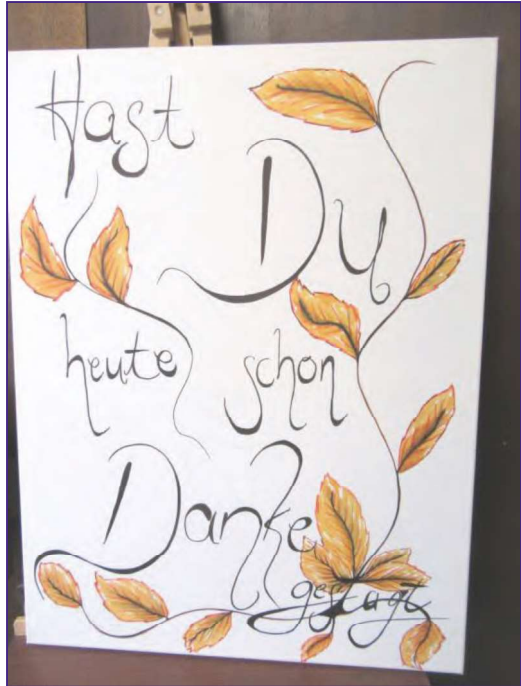 Hast
Du
heute schon
Danke
gesagt